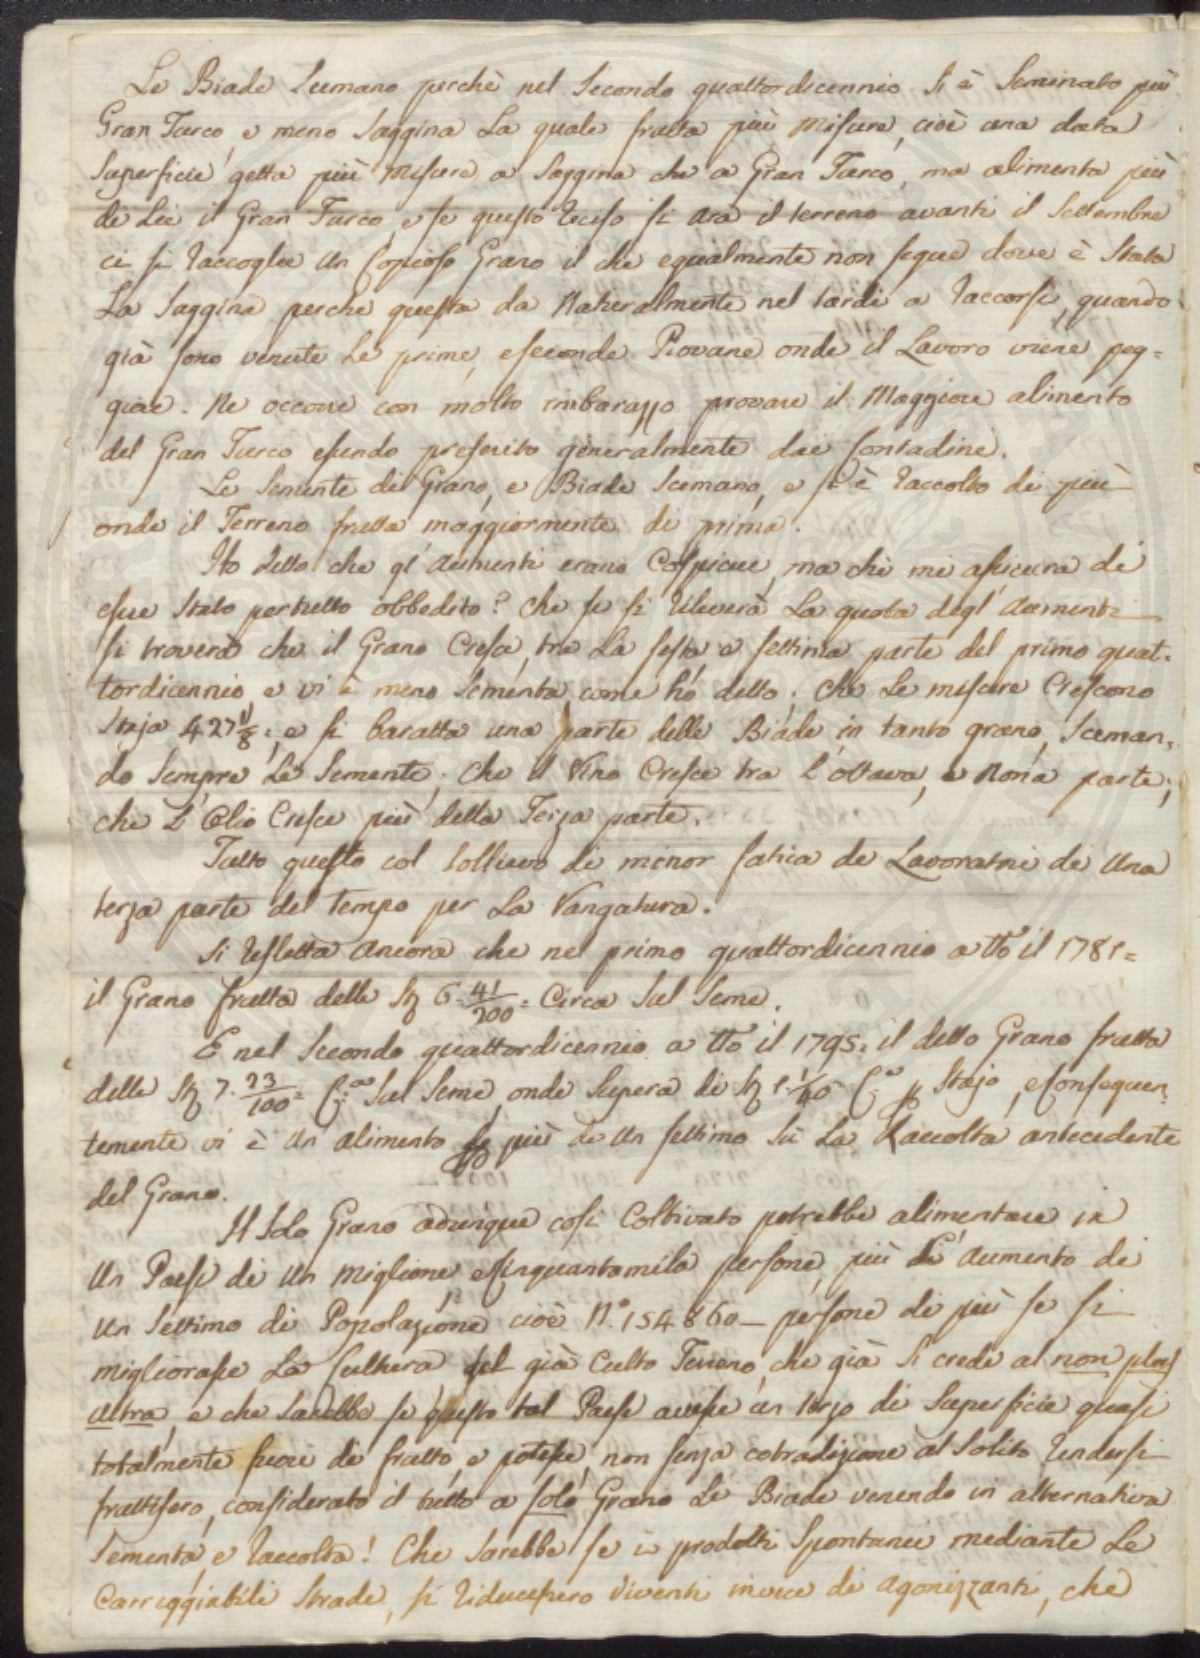 Le Biade Scemano perchè nel Secondo quattordicennio Si è Seminato più
Gran Turco, e meno Saggina La quale frutta più Misure, cioè una data
Superficie getta più Misure a Saggina che a Gran Turco, ma alimenta più
di Lei il Gran Turco, e se questo reciso si ara il terreno avanti il Settembre
ci si raccoglie un Copioso Grano il che egualmente non segue dove è Stata
La Saggina perche questa da Naturalmente nel tardi a raccorsi, quando
già sono venute Le prime, e seconde Piovane onde il Lavoro viene peg=
giore. Ne occorre con molto imbarazzo provare il Maggiore alimento
del Gran Turco essendo preferito generalmente dai Contadini.
Le Semente di Grano, e Biade Scemano, e si è raccolto di più
onde il Terreno frutta maggiormente di prima.
Ho detto che gl' Aumenti erano Cospicui, ma chi mi assicura di
esser Stato pertutto obbedito? Che se si rileverà La quota degl' Aumenti
si troverà che il Grano Cresce tra La sesta e settima parte del primo quat=
tordicennio e vi è meno Sementa, come hò detto; che Le misure Crescono
Staja 427 11/8; e si baratta una parte delle Biade in tanto grano, Sceman=
do Sempre Le Semente; che il Vino Cresce tra l'ottava, e Nona parte;
che L'Olio Cresce più della Terza parte.
Tutto questo col Sollievo di minor fatica de Lavoratori di Una
terza parte del tempo per La Vangatura.
Si refletta Ancora che nel primo quattordicennio a tto il 1781=
il Grano frutta delle St 6. 41/200 = Circa Sul Seme.
E nel Secondo quattordicennio a tto il 1795. il detto Grano frutta
delle St 7. 23/100 = C.ca Sul Seme, onde Supera di St 1. 1/40 C.a p Stajo, e conseguen=
temente vi è un alimento più di un settimo Sù La Raccolta antecedente
del Grano.
Il Solo Grano adunque così Coltivato potrebbe alimentare in
Un Paese di Un Miglione, e Cinquantamila persone, più L'Aumento di
un Settimo di Popolazione cioè N.o 154860 _ persone di più se si
migliorasse La Cultura del già Culto Terreno, che già Si crede al non plus
ultra, e che Sarebbe se questo tal Paese avesse un terzo di Superficie quasi
totalmente fuori di frutto, e potesse, non senza cotradizione al Solito rendersi
fruttifero, considerato il tutto a solo Grano Le Biade venendo in alternativa
Sementa, e raccolta! Che Sarebbe se i prodotti Spontanei mediante Le
Carreggiabili Strade, si riducessero Viventi invece di agonizzanti, che